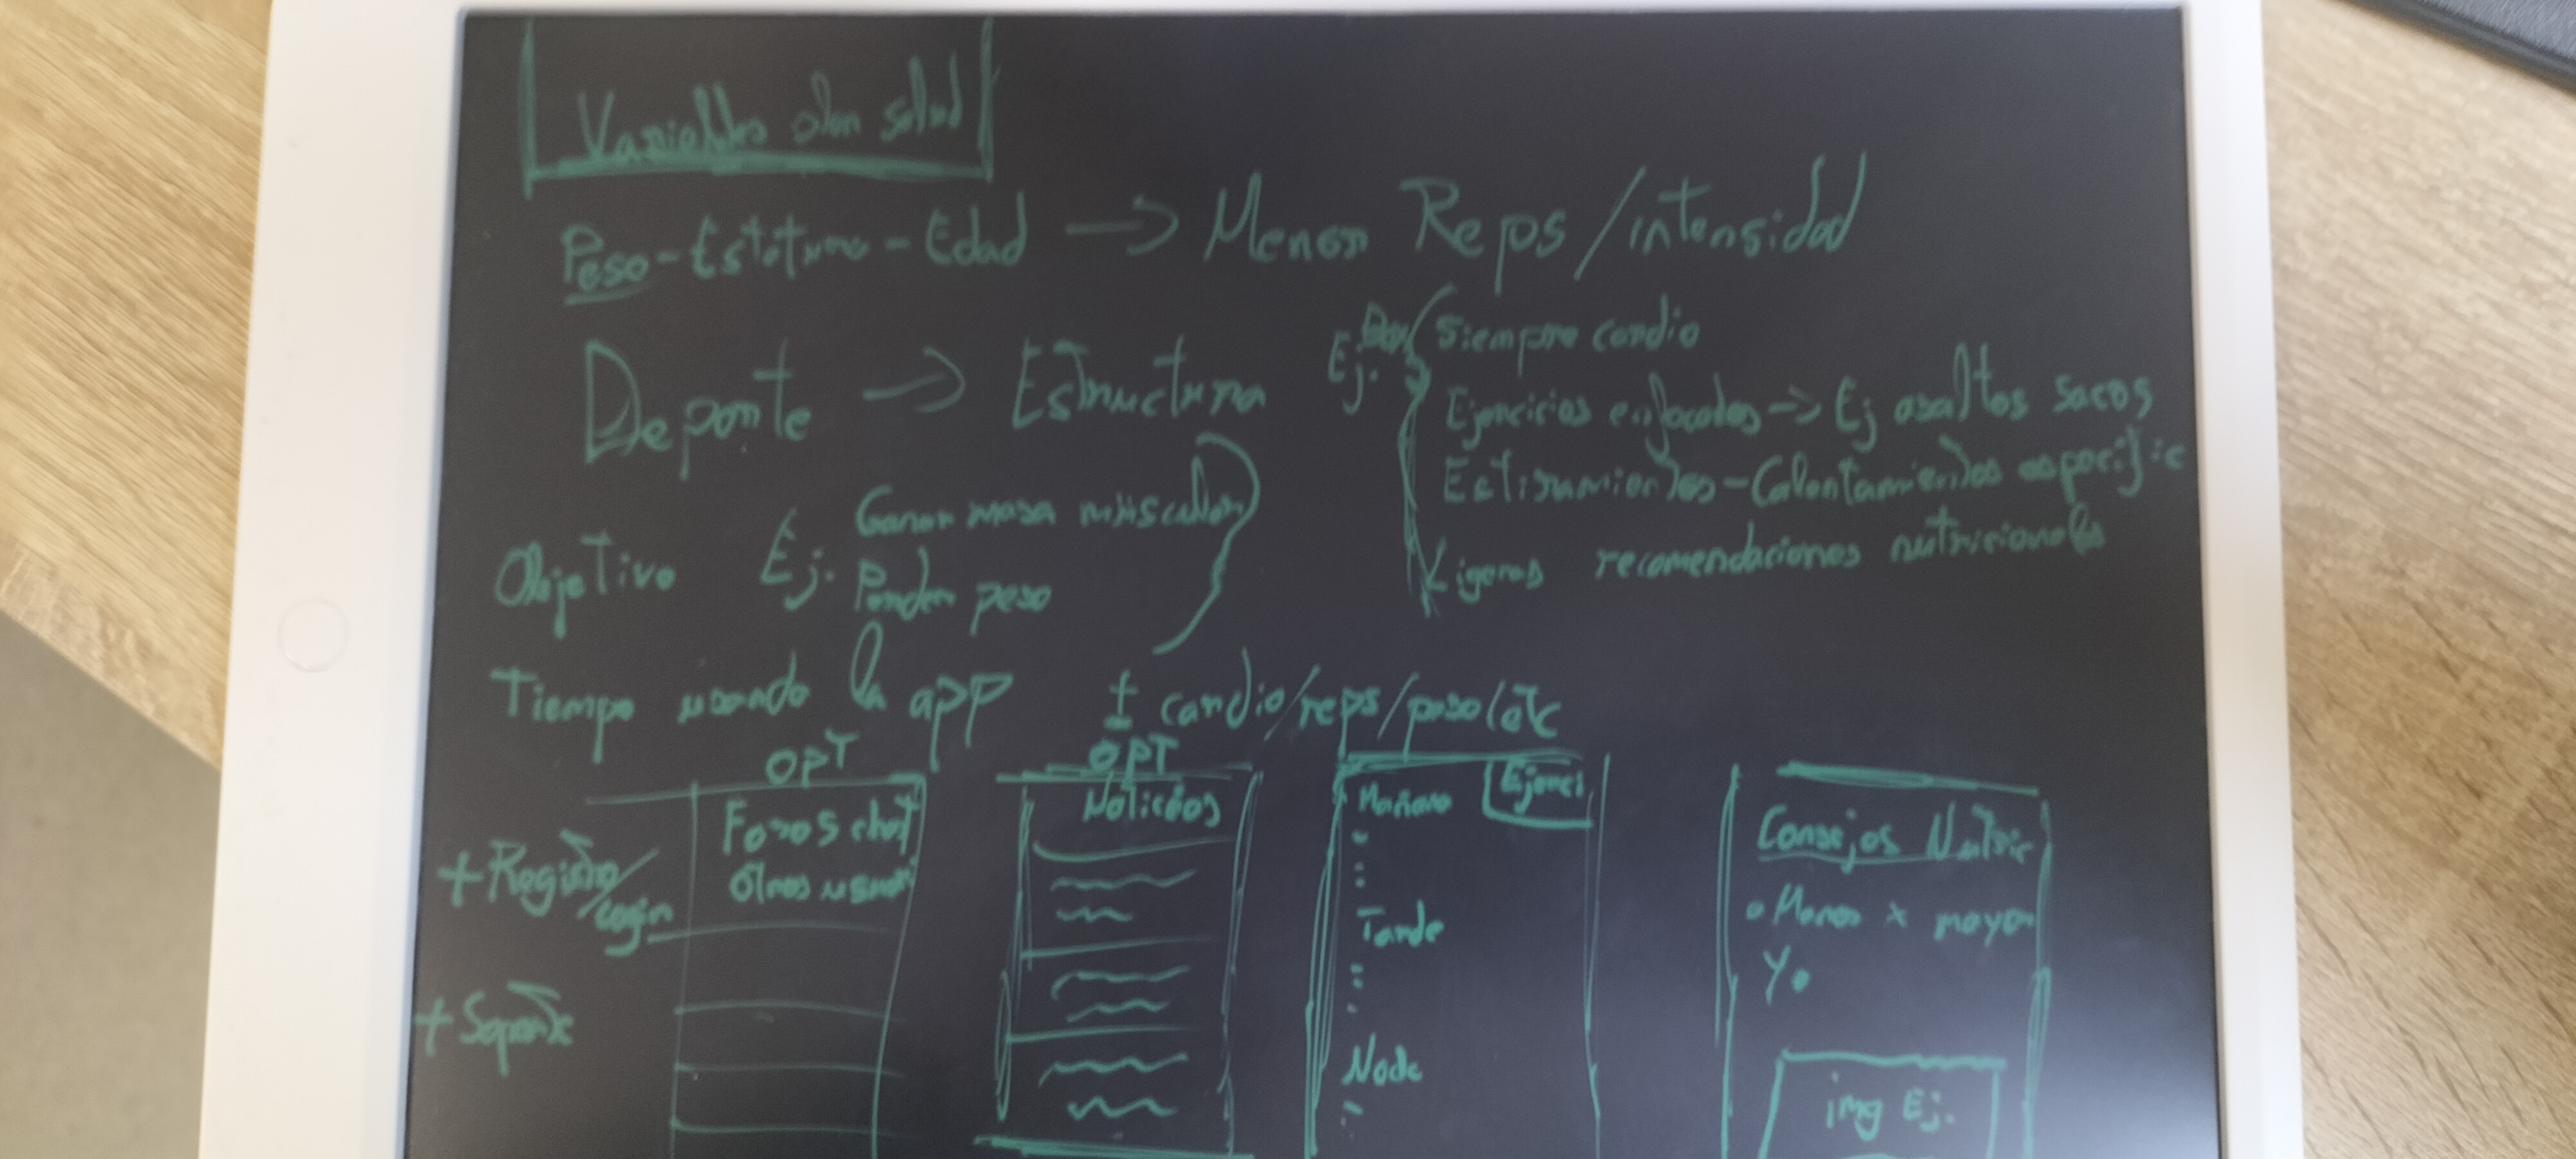 Variables plan salud
Peso - Estatura - Edad → Menor Reps/intensidad
Deporte → Estructura Ej.
Siempre cardio
Ejercicios enfocados → Ej asaltos sacos
Estiramientos - Calentamientos especific
Ligeras recomendaciones nutricionales
Objetivo Ej. Ganar masa muscular
Perder peso
Tiempo usando la app ± cardio/reps/peso/etc
OPT
Foros chat
Otros usuari
OPT
Noticias
Mañana Ejerci
Tarde
Noche
Consejos Nutric
Menos x mayor
Y
img Ej.
+ Registro/
Login
+ Soporte